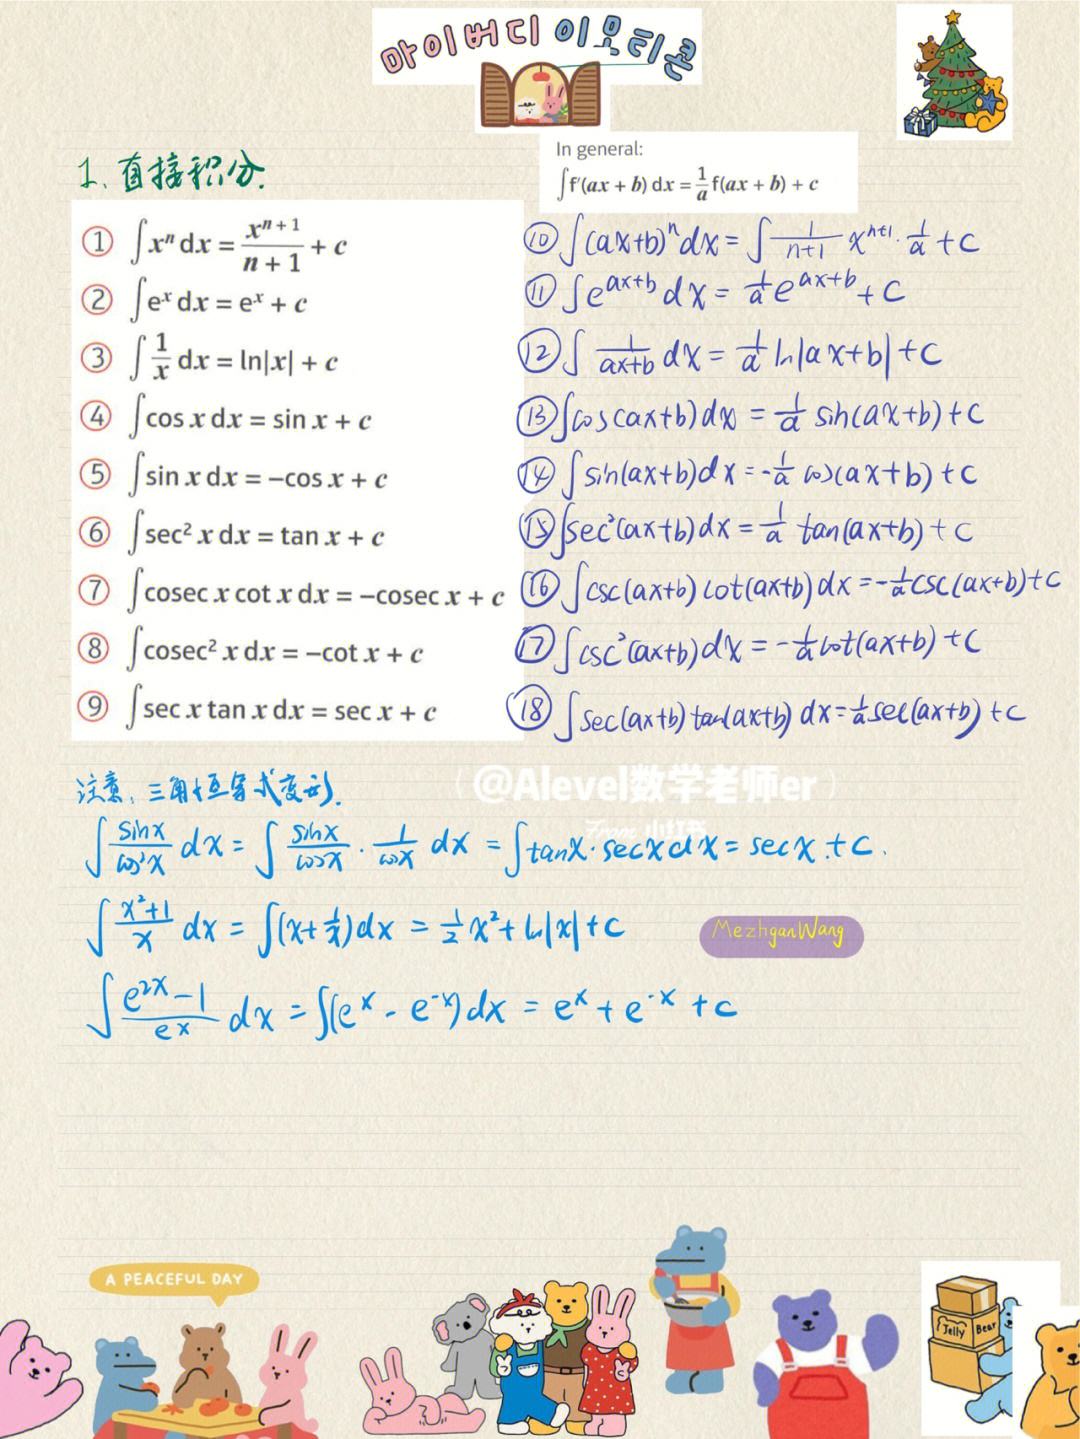 마이버디 이모티콘
1、直接积分.
In general:
∫f′(ax + b) dx = 1/a f(ax + b) + c
① ∫xⁿ dx = xⁿ⁺¹/(n + 1) + c
② ∫eˣ dx = eˣ + c
③ ∫1/x dx = ln|x| + c
④ ∫cos x dx = sin x + c
⑤ ∫sin x dx = −cos x + c
⑥ ∫sec² x dx = tan x + c
⑦ ∫cosec x cot x dx = −cosec x + c
⑧ ∫cosec² x dx = −cot x + c
⑨ ∫sec x tan x dx = sec x + c
⑩ ∫(ax+b)ⁿ dx = ∫ 1/(n+1) xⁿ⁺¹ · 1/a + C
⑪ ∫e^(ax+b) dx = 1/a e^(ax+b) + C
⑫ ∫ 1/(ax+b) dx = 1/a ln|ax+b| + C
⑬ ∫cos(ax+b) dx = 1/a sin(ax+b) + C
⑭ ∫sin(ax+b) dx = -1/a cos(ax+b) + C
⑮ ∫sec²(ax+b) dx = 1/a tan(ax+b) + C
⑯ ∫csc(ax+b) cot(ax+b) dx = -1/a csc(ax+b) + C
⑰ ∫csc²(ax+b) dx = -1/a cot(ax+b) + C
⑱ ∫sec(ax+b) tan(ax+b) dx = 1/a sec(ax+b) + C
注意、三角恒等式变形.
@Alevel数学老师er
From 小红书
∫ sinx/cos²x dx = ∫ sinx/cosx · 1/cosx dx = ∫tanx·secx dx = secx + C.
∫ (x²+1)/x dx = ∫(x + 1/x) dx = 1/2 x² + ln|x| + C
MezhganWang
∫ (e²ˣ − 1)/eˣ dx = ∫(eˣ − e⁻ˣ) dx = eˣ + e⁻ˣ + C
A PEACEFUL DAY
Jelly Bear